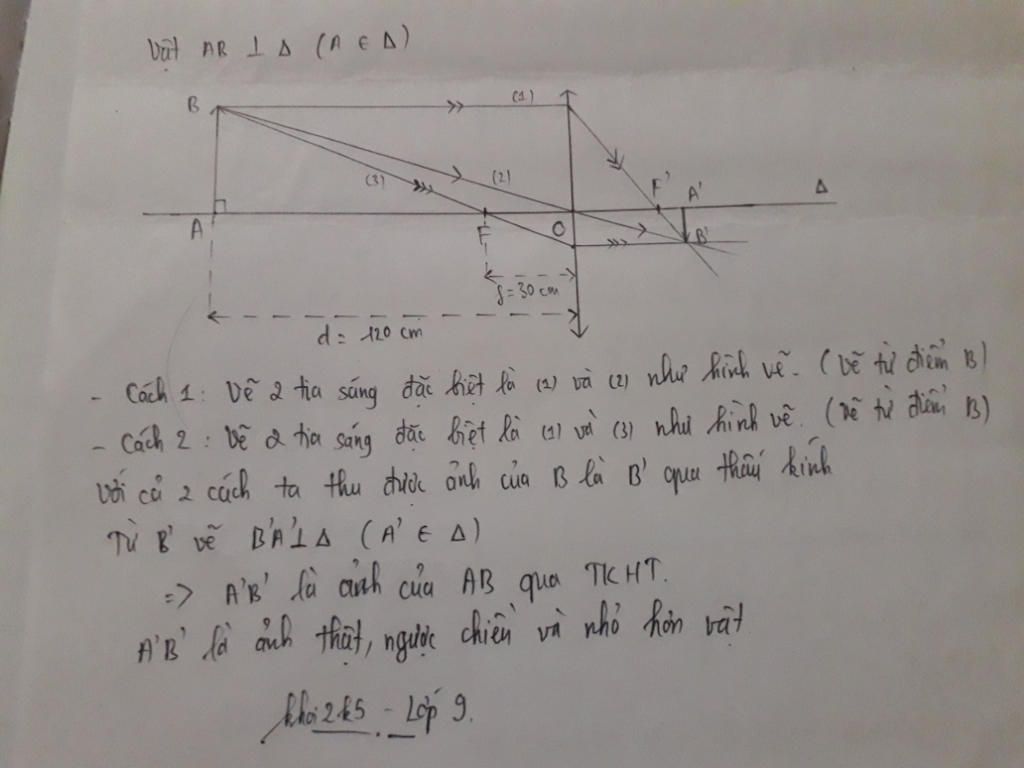 Vật AB ⊥ Δ (A ∈ Δ)
B
(1)
(3)
(2)
F'
A'
Δ
A
F
O
B'
f = 30 cm
d = 120 cm
- Cách 1: Vẽ 2 tia sáng đặc biệt là (1) và (2) như hình vẽ. (Vẽ từ điểm B)
- Cách 2: Vẽ 2 tia sáng đặc biệt là (1) và (3) như hình vẽ. (Vẽ từ điểm B)
Với cả 2 cách ta thu được ảnh của B là B' qua thấu kính
Từ B' vẽ B'A' ⊥ Δ (A' ∈ Δ)
=> A'B' là ảnh của AB qua TKHT.
A'B' là ảnh thật, ngược chiều và nhỏ hơn vật
khoi2k5 - Lớp 9.